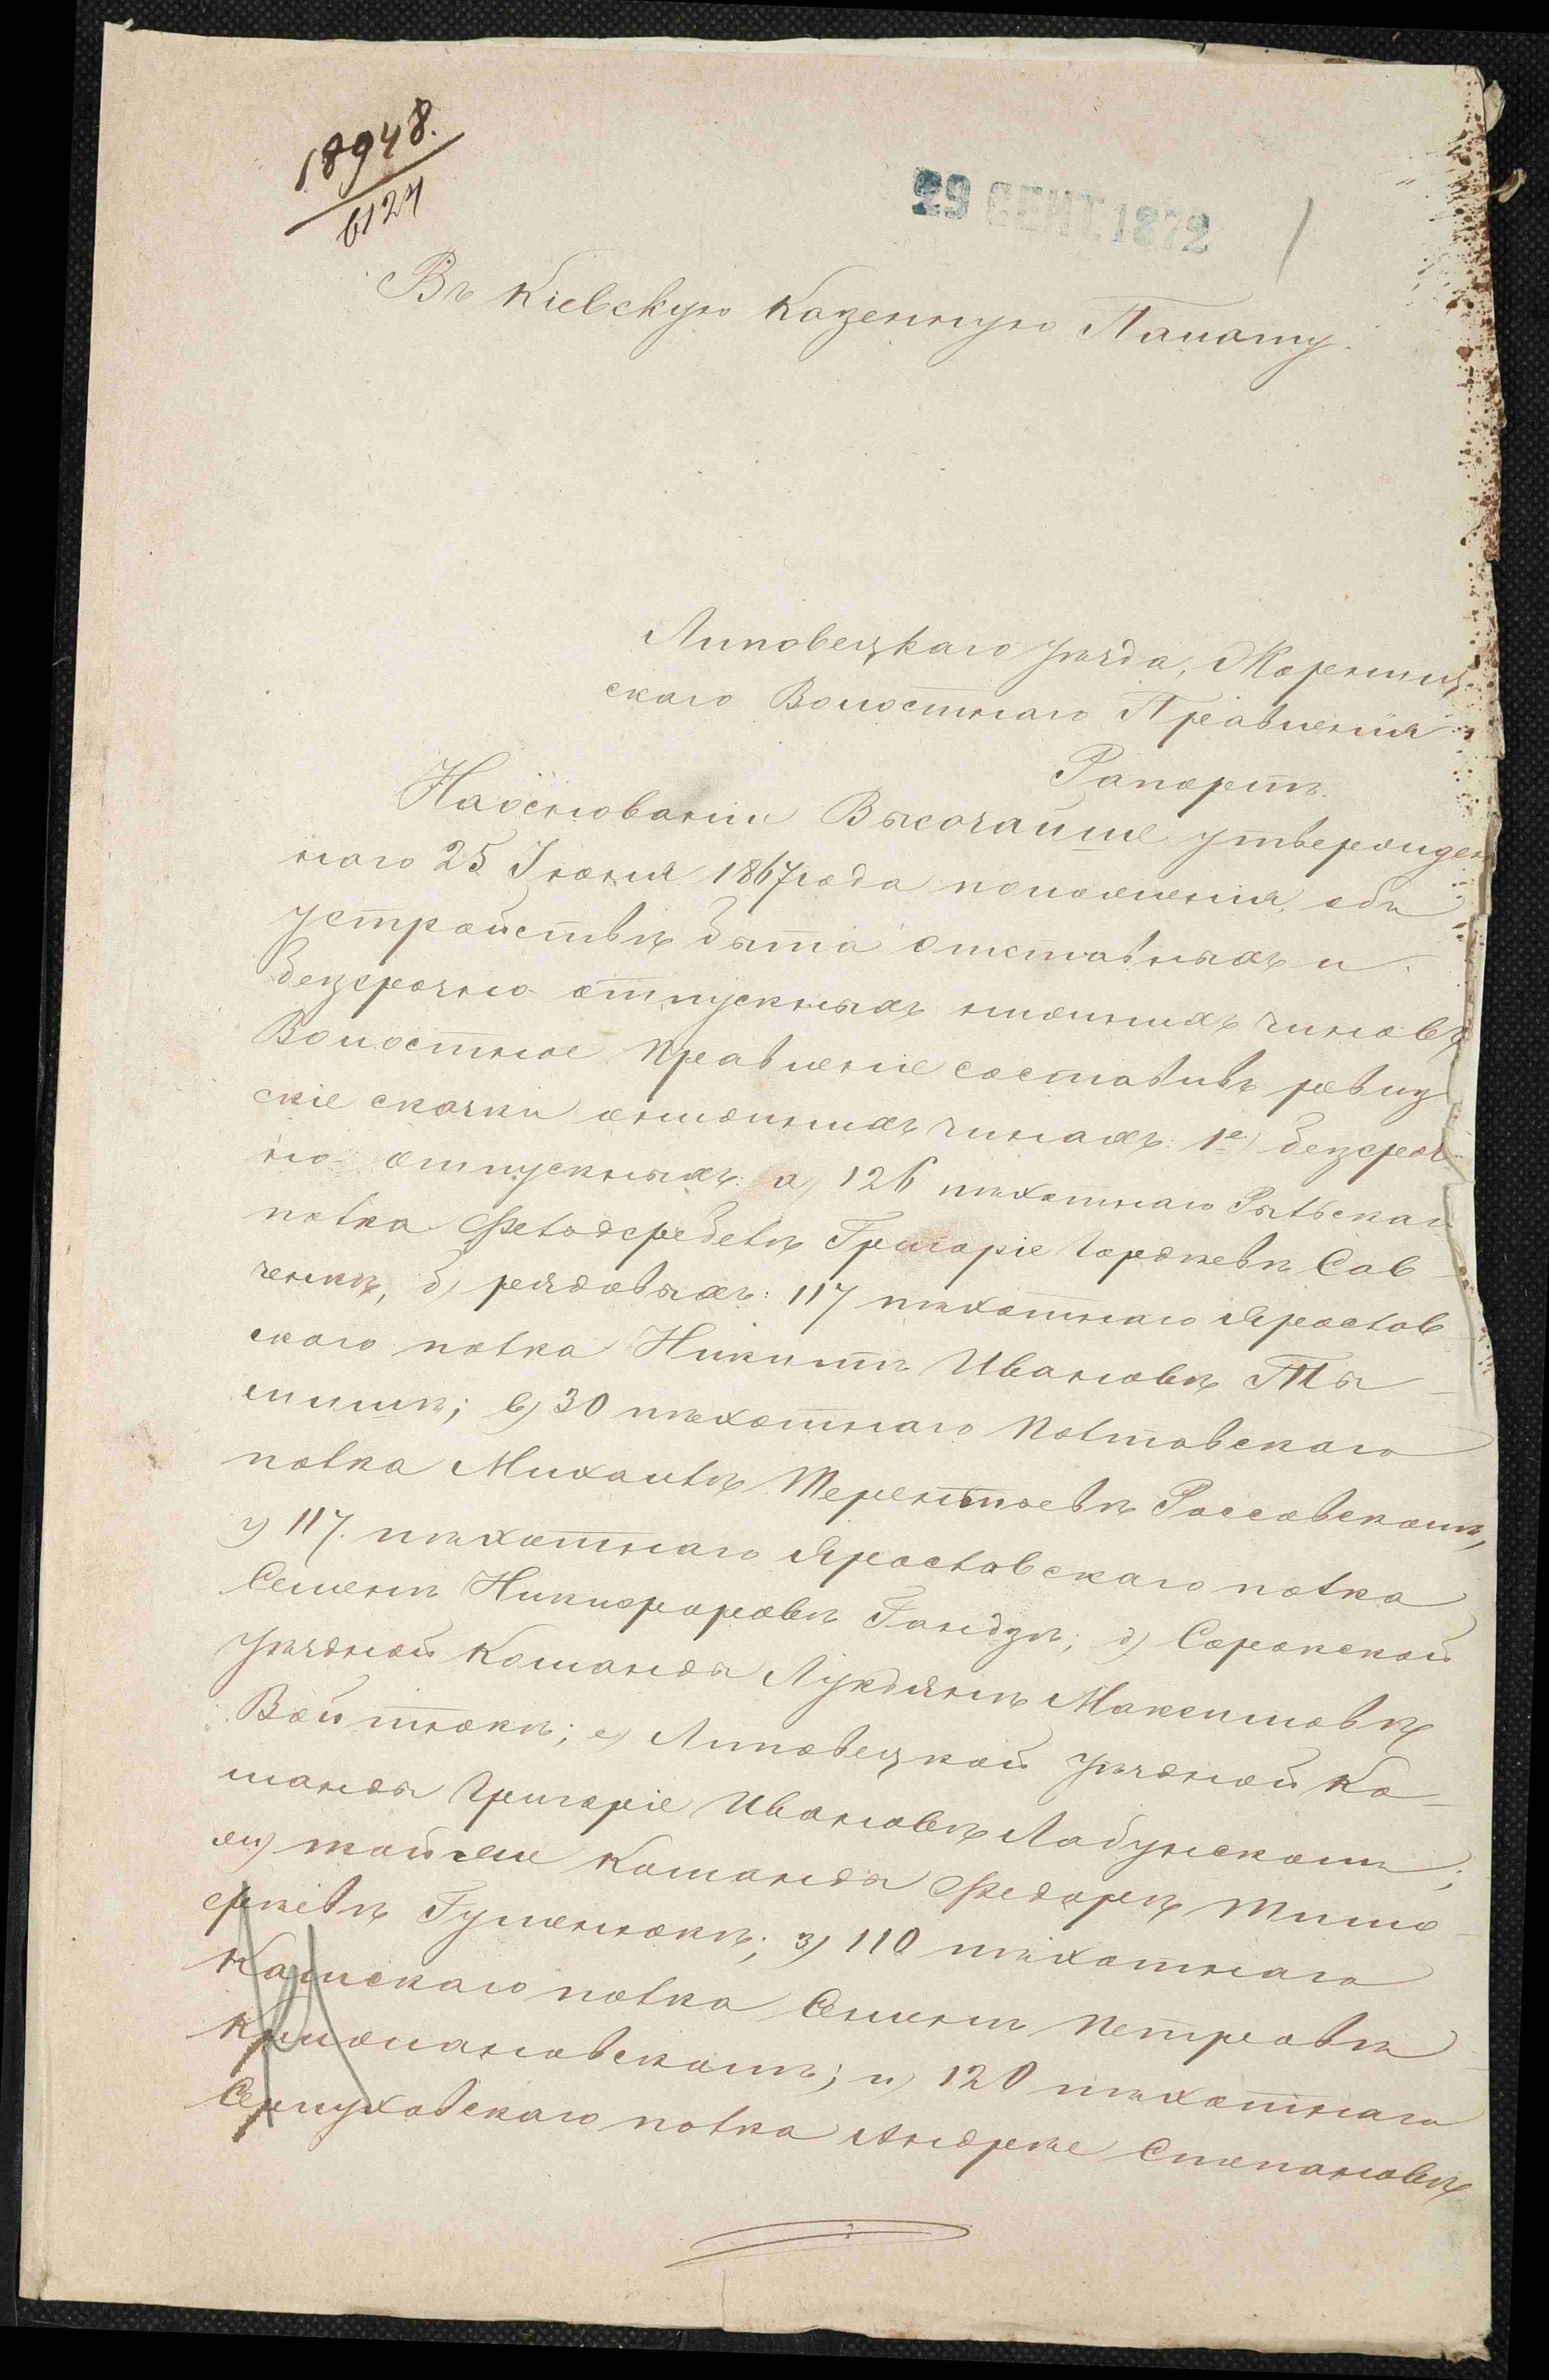 18948.
6124
29 СЕНТ. 1872
Въ Кіевскую Казенную Палату.
Липовецкаго уѣзда,
скаго Волостнаго Правленія
Рапортъ.
Наоснованіи Высочайше утвержден
наго 25 Іюня 1867 года положенія, объ
устройствѣ быта отставныхъ и
безсрочно отпускныхъ нижнихъ чиновъ,
Волостное Правленіе составивъ ревиз
скіе сказки онижнихъ чинахъ: 1е) безсроч
но отпускныхъ: а) 126 пѣхотнаго Рыльскаго
полка Фельдфебелѣ Григоріе Гордѣевѣ Сав
ченкѣ, б) рядовыхъ: 117 пѣхотнаго Ярослав
скаго полка Никитѣ Ивановѣ
в) 30 пѣхотнаго Полтавскаго
полка Михаилѣ Терентьевѣ Россовскомъ,
г) 117. пѣхотнаго Ярославскаго полка
Семенѣ Никифоровѣ Гандзѣ; д) Сорокской
уѣздной Команды Лукьянѣ Максимовѣ
Войтюкѣ; е) Липовецкой уѣздной Ко-
манды Григоріе Ивановѣ Лабунскомъ;
ж) тойже Команды Федорѣ Тимо
феевѣ Гуменюкѣ; з) 110 пѣхотнаго
Камскаго полка Семенѣ Петровѣ
и) 120 пѣхотнаго
Серпуховскаго полка Андрѣе Степановѣ